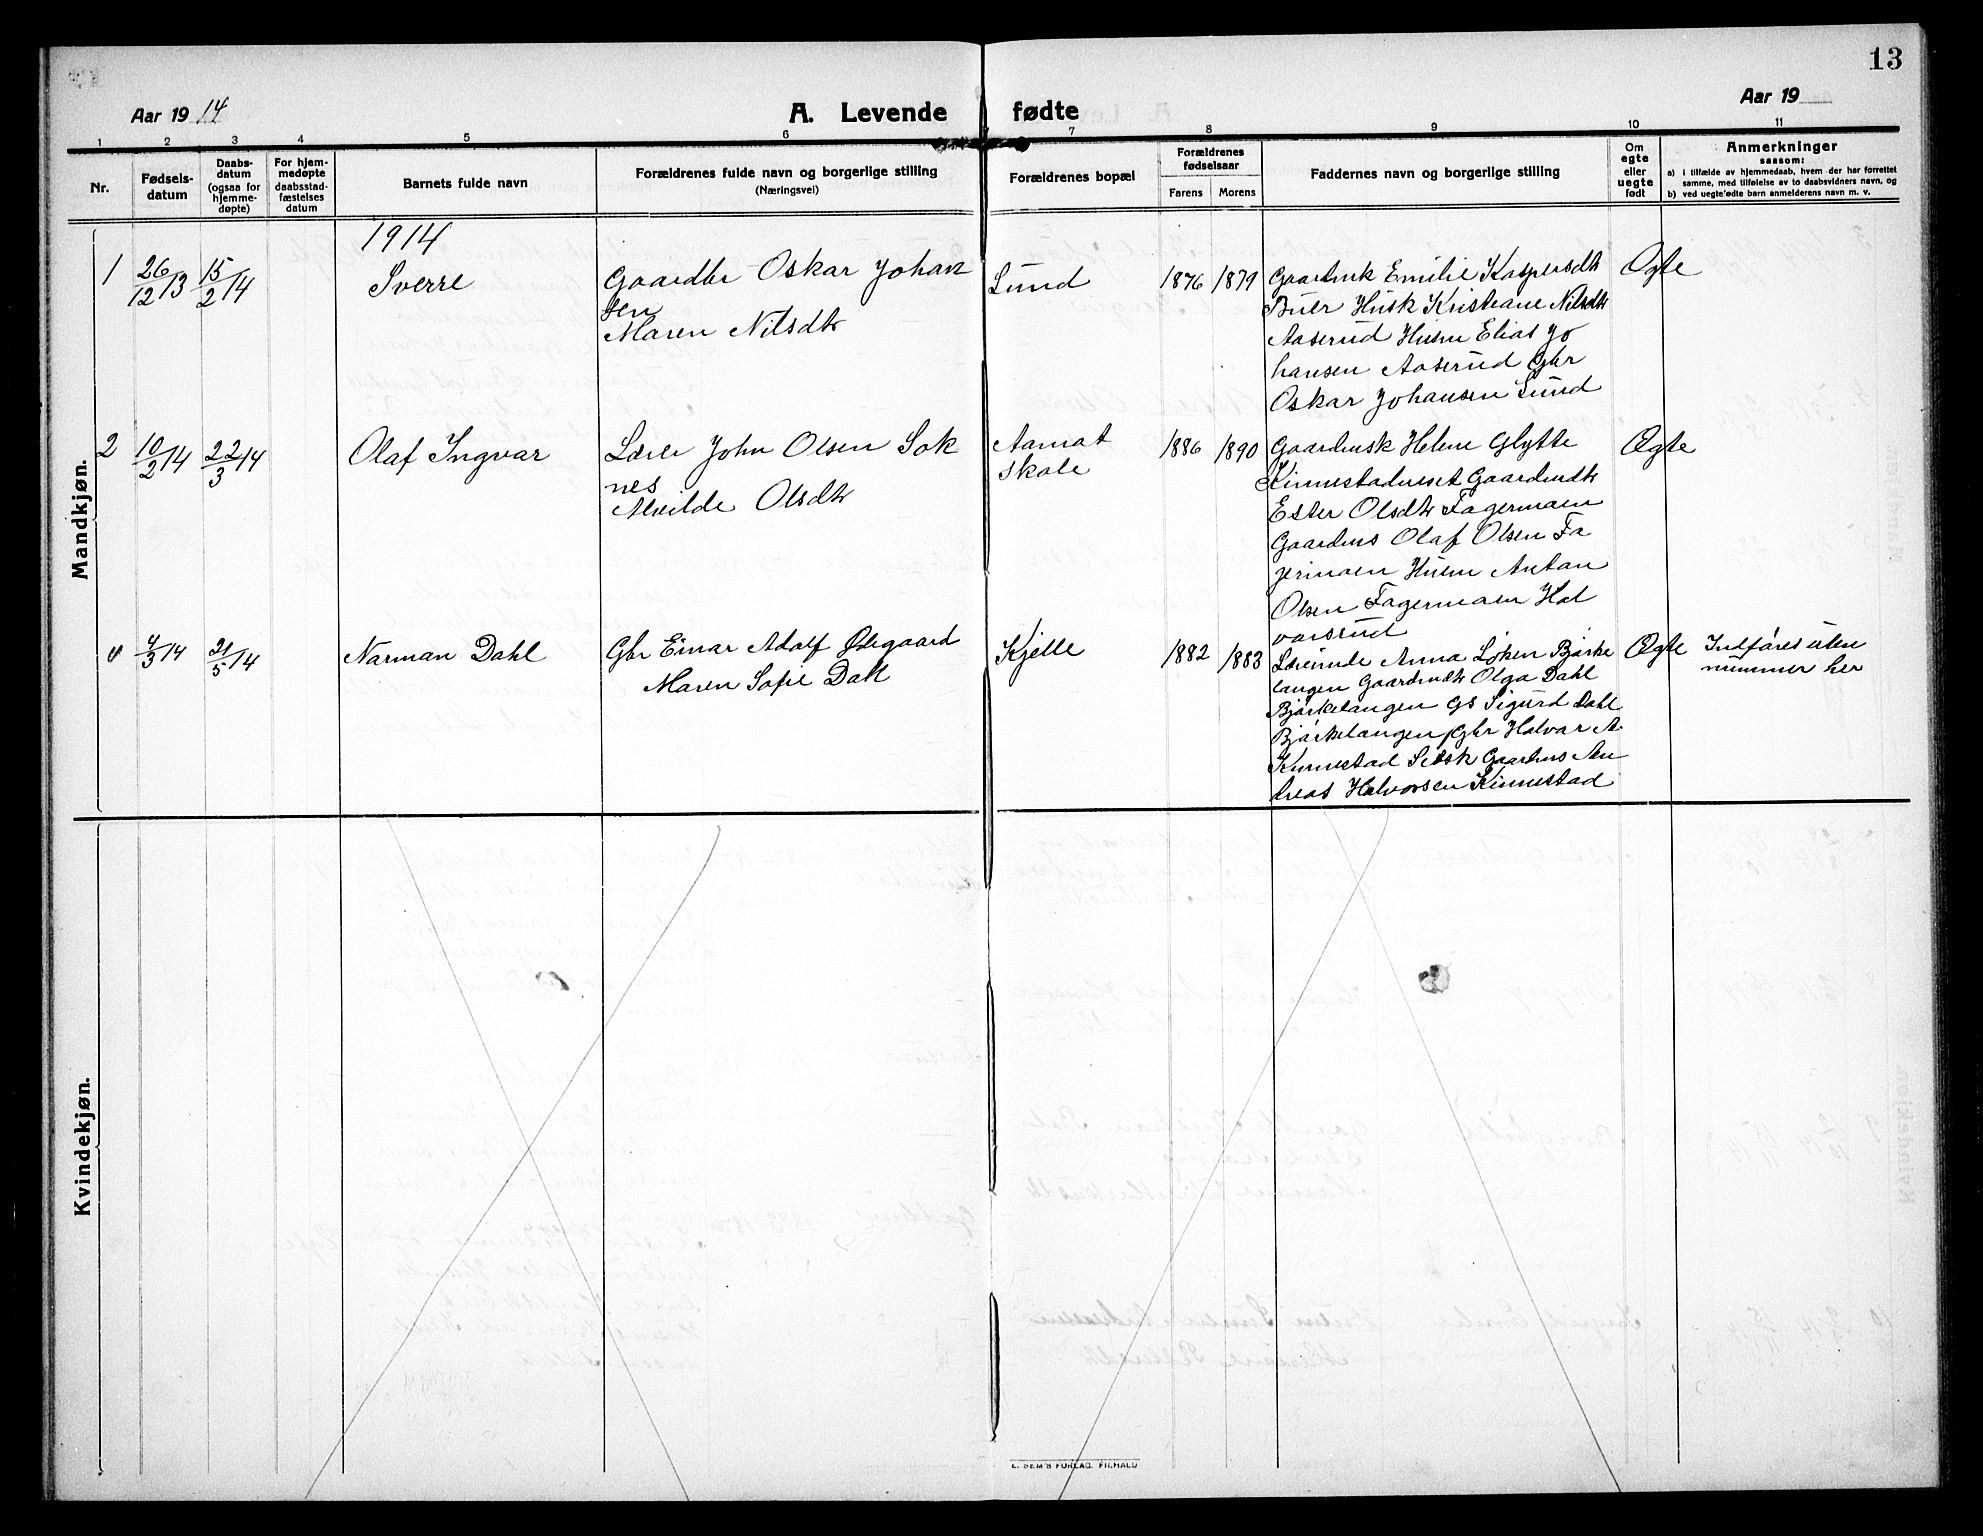 13
Aar 1914
A. Levende fødte
Aar 19
1 2 3 4 5 6 7 8 9 10 11
Nr.
Fødsels-
datum
Daabs-
datum
(ogsaa for
hjemme-
døpte)
For hjem-
medøpte
daabsstad-
fæstelses
datum
Barnets fulde navn
Forældrenes fulde navn og borgerlige stilling
(Næringsvei)
Forældrenes bopæl
Forældrenes
fødselsaar
Farens Morens
Faddernes navn og borgerlige stilling
Om
egte
eller
uegte
født
Anmerkninger
saasom:
a) i tilfælde av hjemmedaab, hvem der har forrettet
samme, med tilføielse av to daabsvidners navn, og
b) ved uegte fødte barn anmelderens navn m. v.
Mandkjøn.
1914
1
26/12 13
15/2 14
Sverre
Gaardbr Oskar Johan
sen
Maren Nilsdtr
Lund
1876 1879
Gaardmsk Emilie Kaspersdtr
Buer Husk Kristiane Nilsdtr
Aaserud Husm Elias Jo
hansen Aaserud Gbr
Oskar Johansen Lund
Ægte
2
10/2 14
22/3 14
Olaf Ingvar
Lærer John Olsen Sok
nes
Alvilde Olsdtr
Aamot
skole
1886 1890
Gaardmsk Helene Glytte
Kinnestadneset Gaardmdtr
Ester Olsdtr Fagermoen
Gaardms Olaf Olsen Fa
germoen Husm Anton
Olsen Fagermoen Hal
vorsrud
Ægte
4/3 14
21/5 14
Narman Dahl
Gbr Einar Adolf Ødegaard
Maren Sofie Dahl
Kjelle
1882 1883
Lærinde Anna Løken Bjørke
langen Gaardmdtr Olga Dahl
Bjørkelangen GS Sigurd Dahl
Bjørkelangen Gbr Halvor A.
Kinnestad Setsk Gaardms An
dreas Halvorsen Kinnestad
Ægte
Indføres uten
nummer her
Kvindekjøn.
E. SEM'S FORLAG, FR.HALD